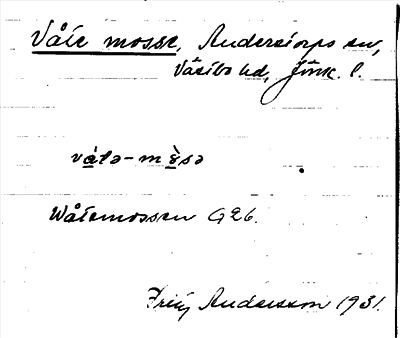 Våte mosse, Anderstorps sn,
Västbo hd, Jönk. l.
våtə-mɷ̀sə
Wåtemossen GEG.
Fritz Andersson 1931.